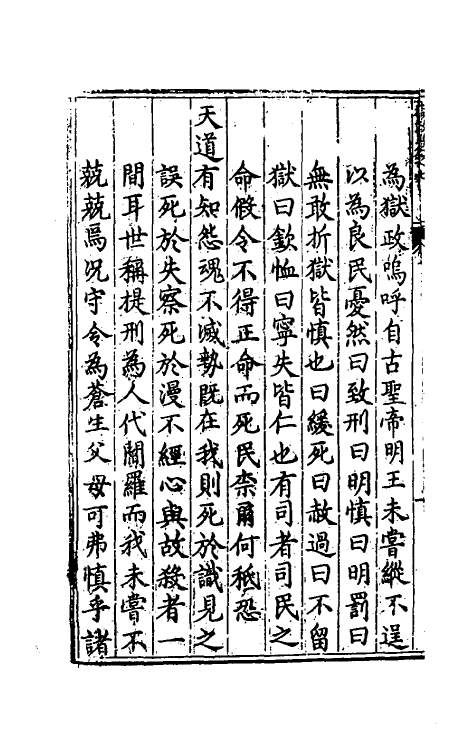 為獄政嗚呼自古聖帝明王未嘗縱不逞
以為良民憂然曰致刑曰明慎曰明罰曰
無敢折獄皆慎也曰緩死曰赦過曰不留
獄曰欽恤曰寧失皆仁也有司者司民之
命假令不得正命而死民柰爾何秪恐
天道有知怨魂不滅勢既在我則死於識見之
誤死於失察死於漫不經心與故殺者一
間耳世稱提刑為人代閻羅而我未嘗不
兢兢焉况守令為蒼生父母可弗慎乎諸